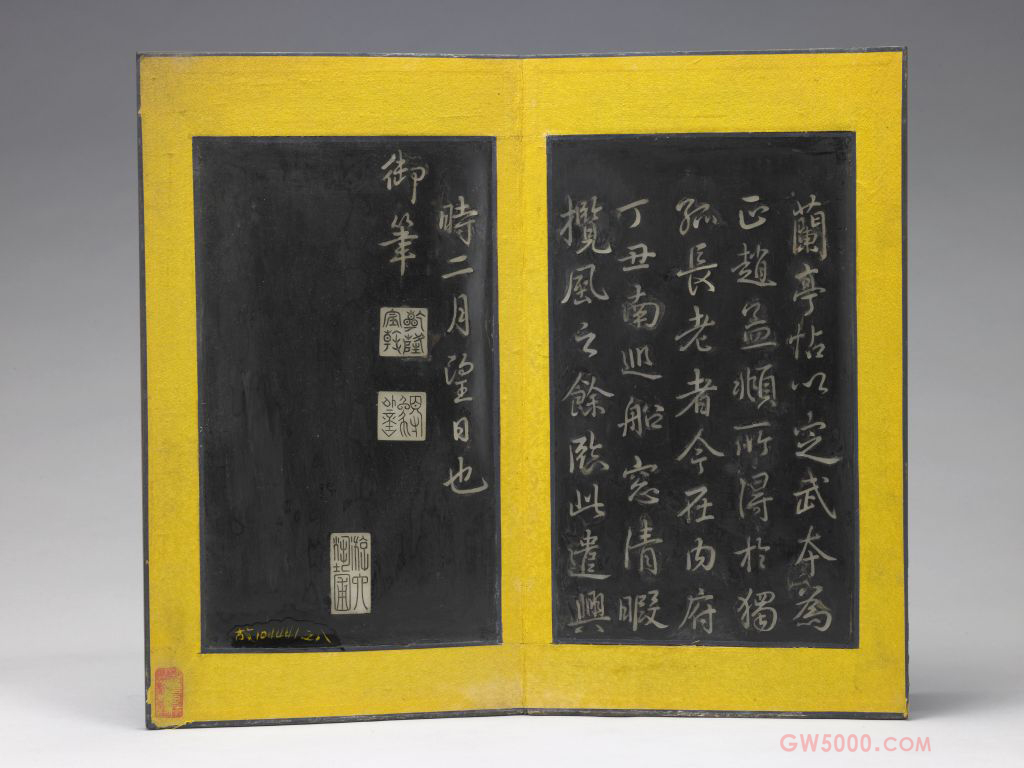 蘭亭帖以定武本為
正趙孟頫所得於獨
孤長老者今在內府
丁丑南巡船窓清暇
攬風之餘臨此遣興
時二月望日也
御筆
乾隆宸翰
故10.4441之八
GW5000.COM